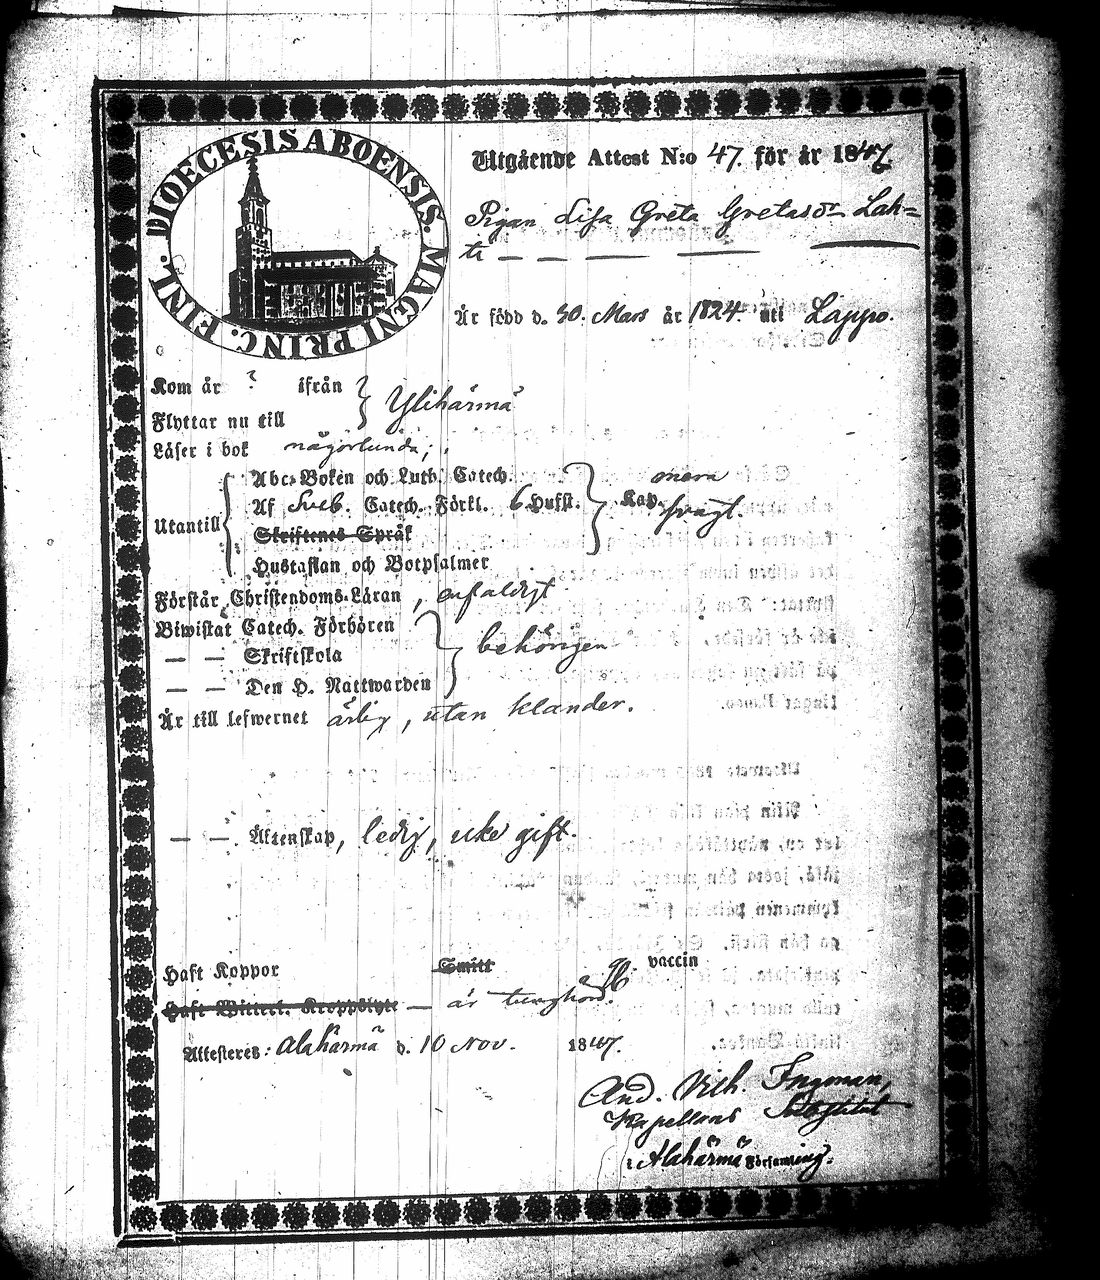 DIOECESIS ABOENSIS. MAGNI PRINC. FINL.
Utgående Attest N:o 47. för år 1847
Pigan Lisa Greta Gretasdr Lah=
ti — — — —
Är född d. 30. Mars år 1824. uti Lappo.
Kom år ? ifrån
Flyttar nu till } Ylihärmä
Läser i bok någorlunda;
Abc-Boken och Luth. Catech. mera
Utantill { Af Sveb. Catech. Förkl. 6 Hufst. } Kap. svagt.
Skriftenes Språk
Hustaflan och Botpsalmer
Förstår Christendoms-Läran, enfaldigt
Biwistat Catech. Förhören
— — Skriftskola } behörigen
— — Den H. Nattwarden
Är till lefwernet ärlig, utan klander.
— — Äktenskap, ledig, icke gift.
Haft Koppor Smitt vaccin
Haft Witterl. Kroppslyte — är tunghörd.
Attesteres: Alahärmä d. 10 Nov. 1847.
And. Vilh. Ingman,
Kapellans Substitut
i Alahärmä Församling.